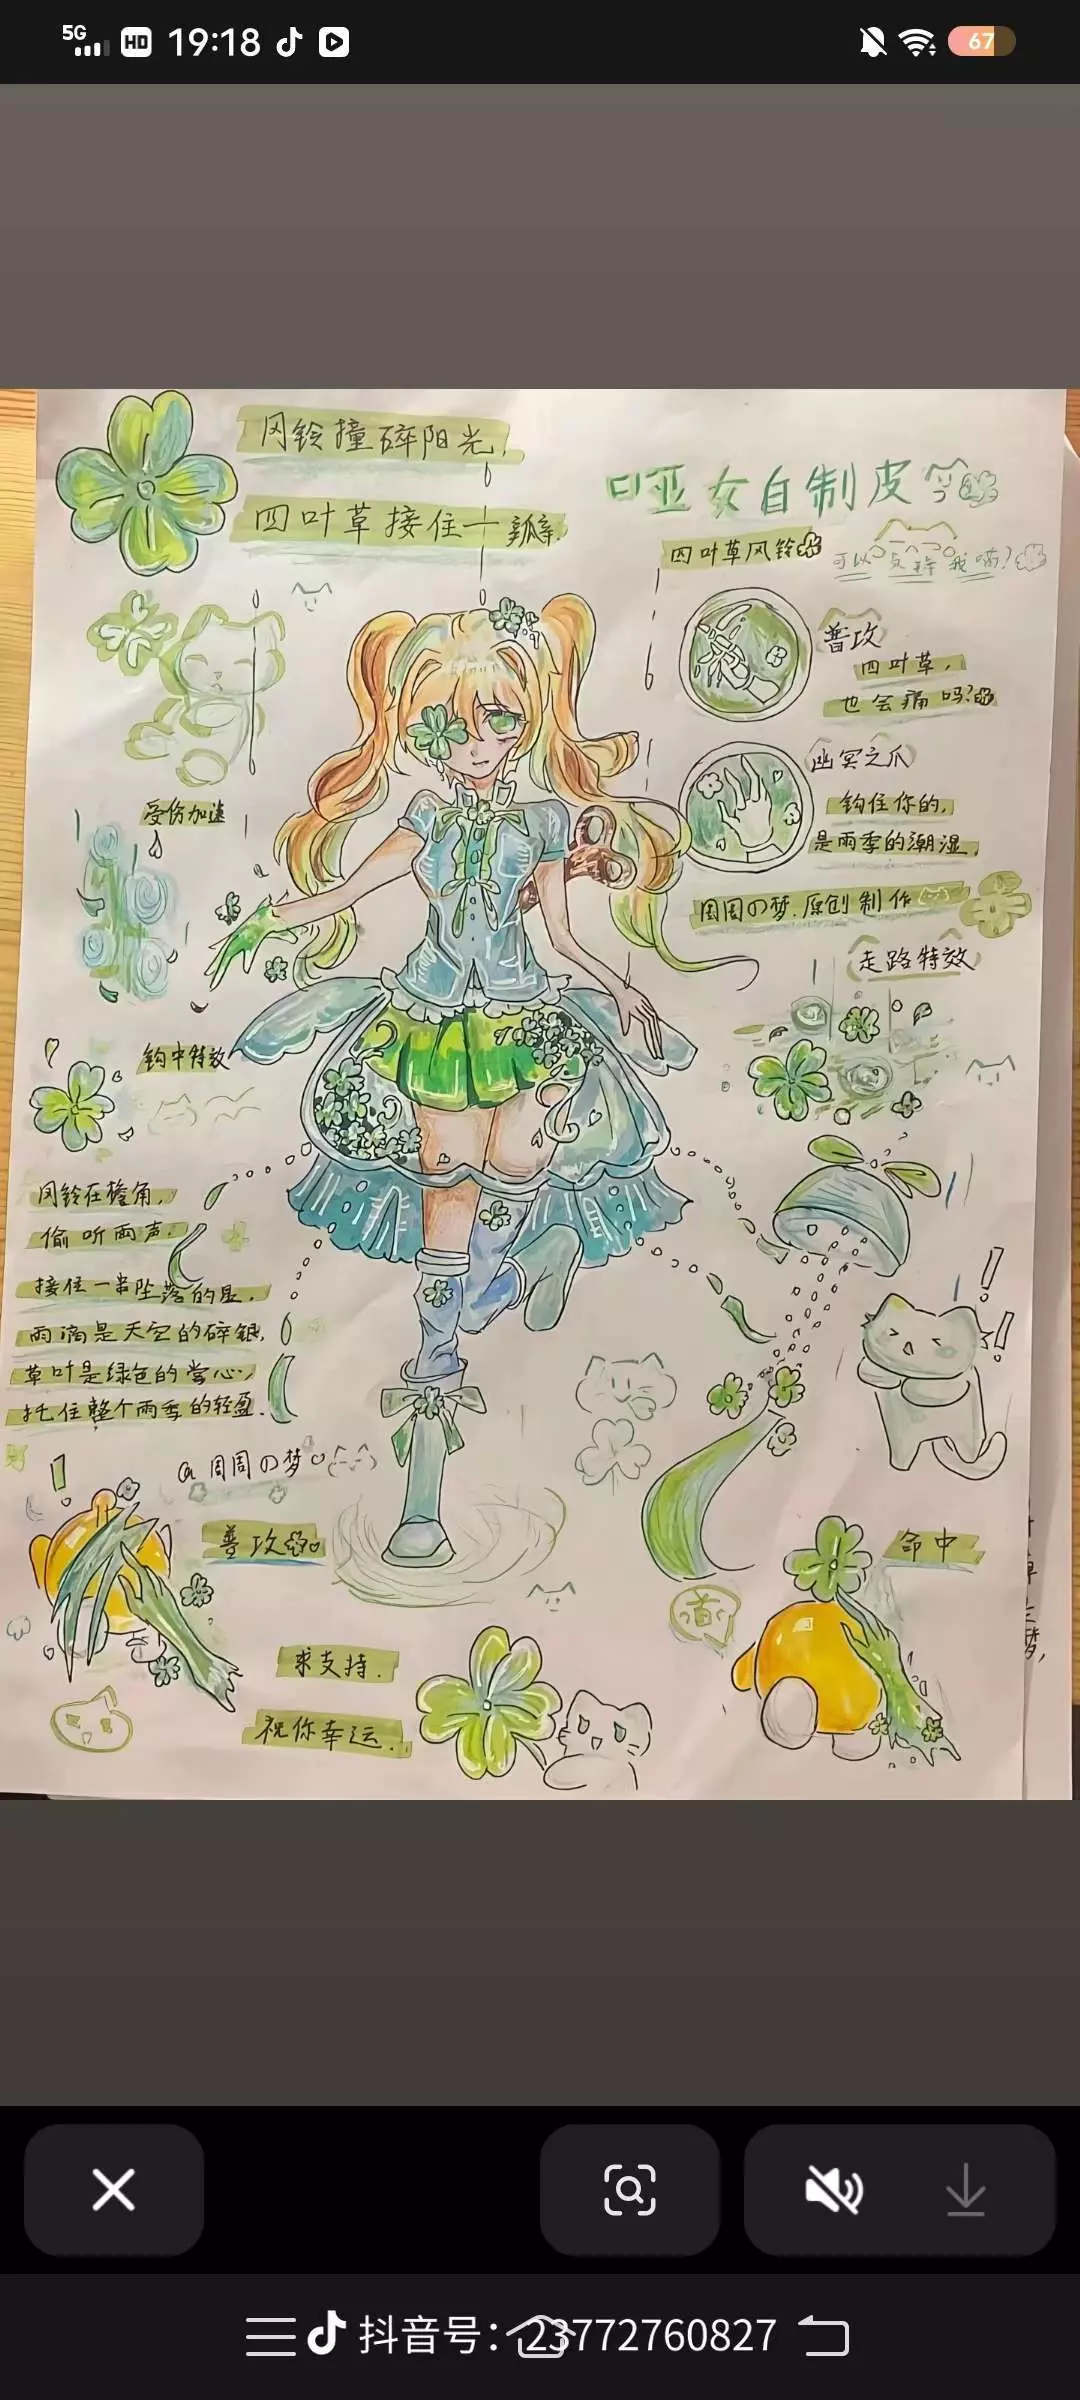 5G HD 19:18 67
风铃撞碎阳光,
四叶草接住一瓣.
口亚女自制皮
四叶草风铃
可以支持我嘛?
普攻
四叶草,
也会痛吗?
幽冥之爪
钩住你的,
是雨季的潮湿.
周周の梦.原创制作
走路特效
受伤加速
钩中特效
风铃在檐角,
偷听雨声.
接住一串坠落的星,
雨滴是天空的碎银,
草叶是绿色的掌心,
托住整个雨季的轻盈.
@周周の梦
普攻
命中
首
求支持.
祝你幸运.
抖音号:23772760827